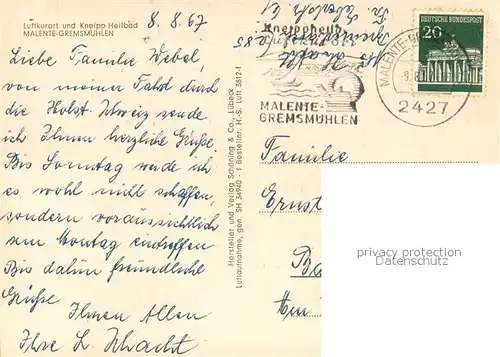 Luftkurort und Kneipp-Heilbad
MALENTE-GREMSMÜHLEN
8.8.67
Liebe Familie Webel
von meiner Fahrt durch
die Holst. Schweiz sende
ich Ihnen herzliche Grüße.
Bis Sonntag werde ich
es wohl nicht schaffen,
sondern voraussichtlich
am Montag eintreffen
Bis dahin freundliche
Grüße
Ihnen Allen
Ihre L. Schacht
Hersteller und Verlag Schöning & Co., Lübeck
Luftaufnahme, gen. SH 34940 - 1 Bestellnr. H.-S. Luft 3812-1
Kneippheil
MALENTE-
GREMSMÜHLEN
MALENTE-
2427
DEUTSCHE BUNDESPOST
20
Familie
Ernst
privacy protection
Datenschutz